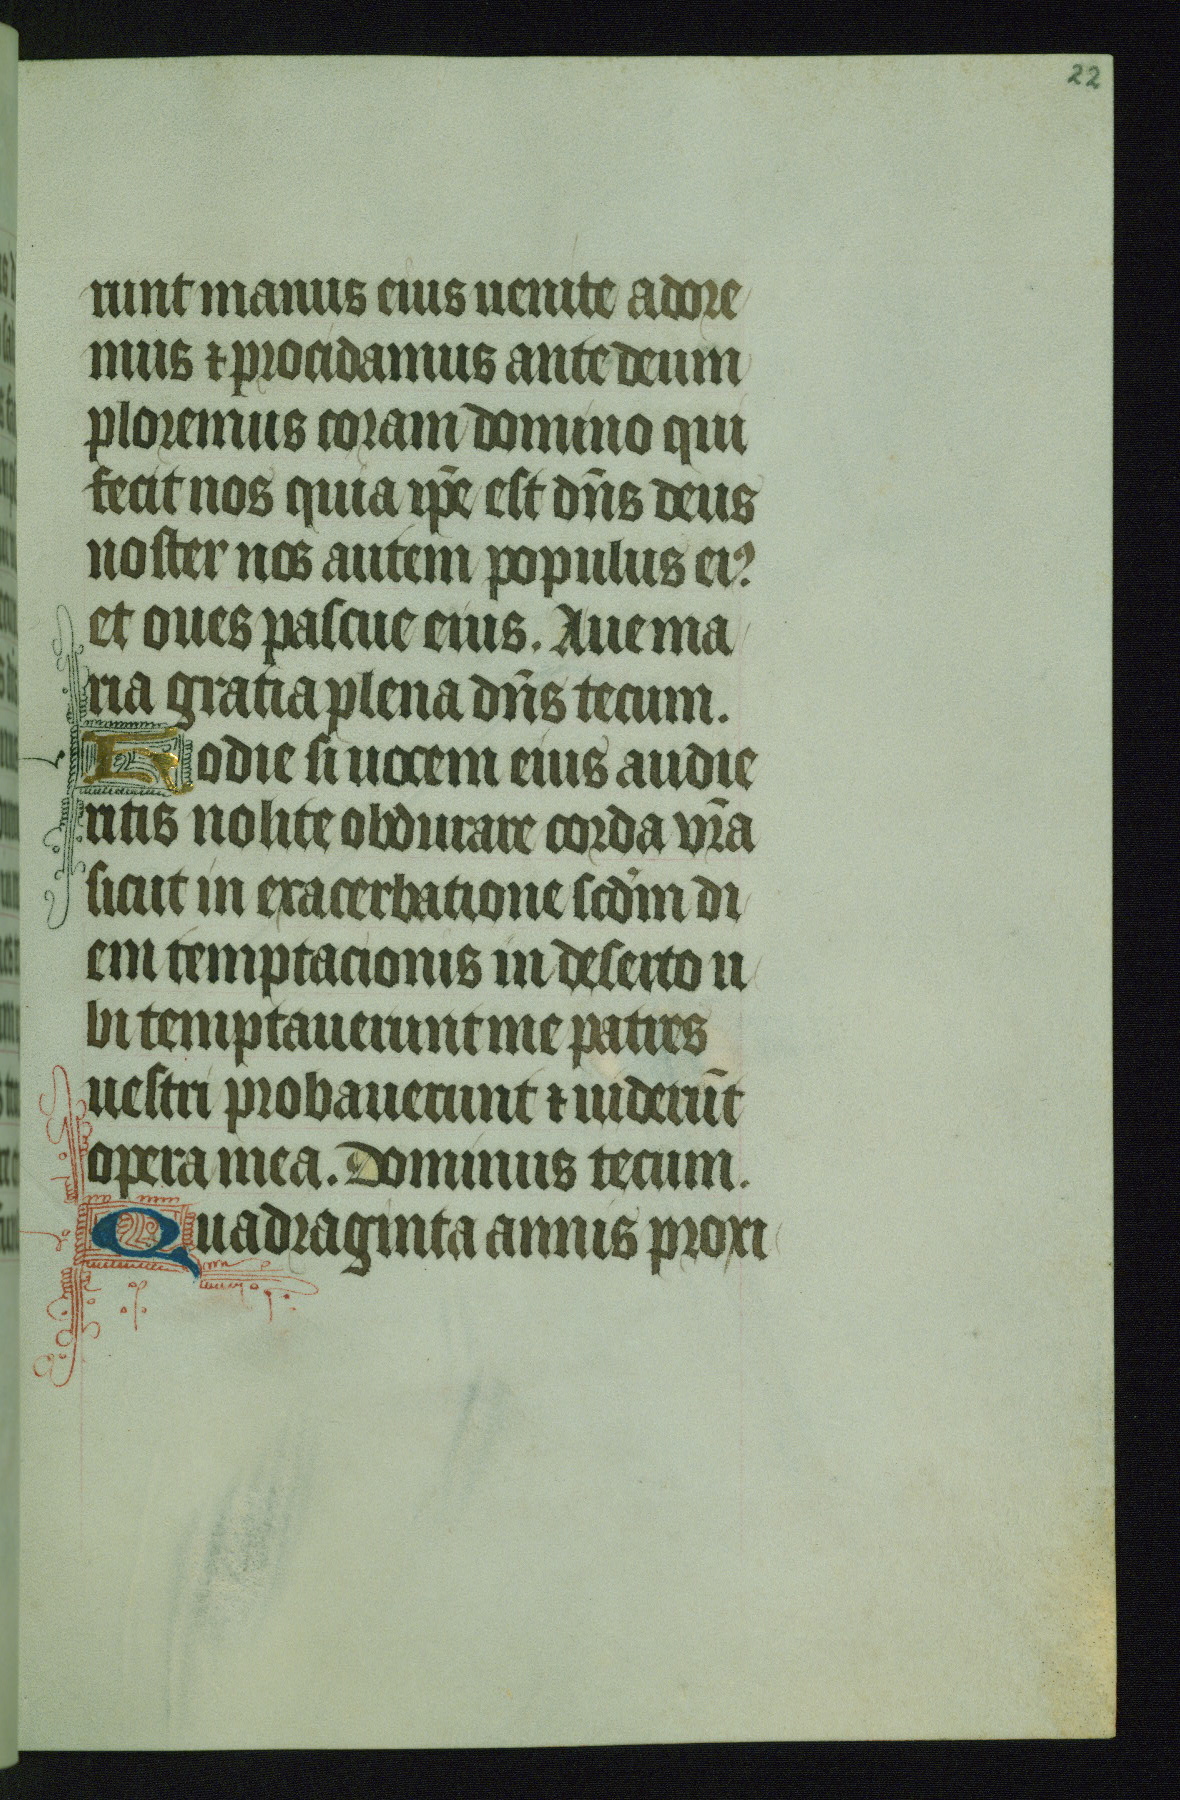 22
runt manus eius uenite adore
mus ⁊ procidamus ante deum
ploremus coram domino qui
fecit nos quia ip̄e est dn̄s deus
noster nos autem populus eiꝰ
et oues pascue eius. Aue ma
ria gratia plena dn̄s tecum.
Hodie si uocem eius audie
ritis nolite obdurare corda vr̄a
sicut in exacerbatione scd̄m di
em temptacionis in deserto u
bi temptauerunt me patres
uestri probauerunt ⁊ uiderūt
opera mea. Dominus tecum.
Quadraginta annis proxi